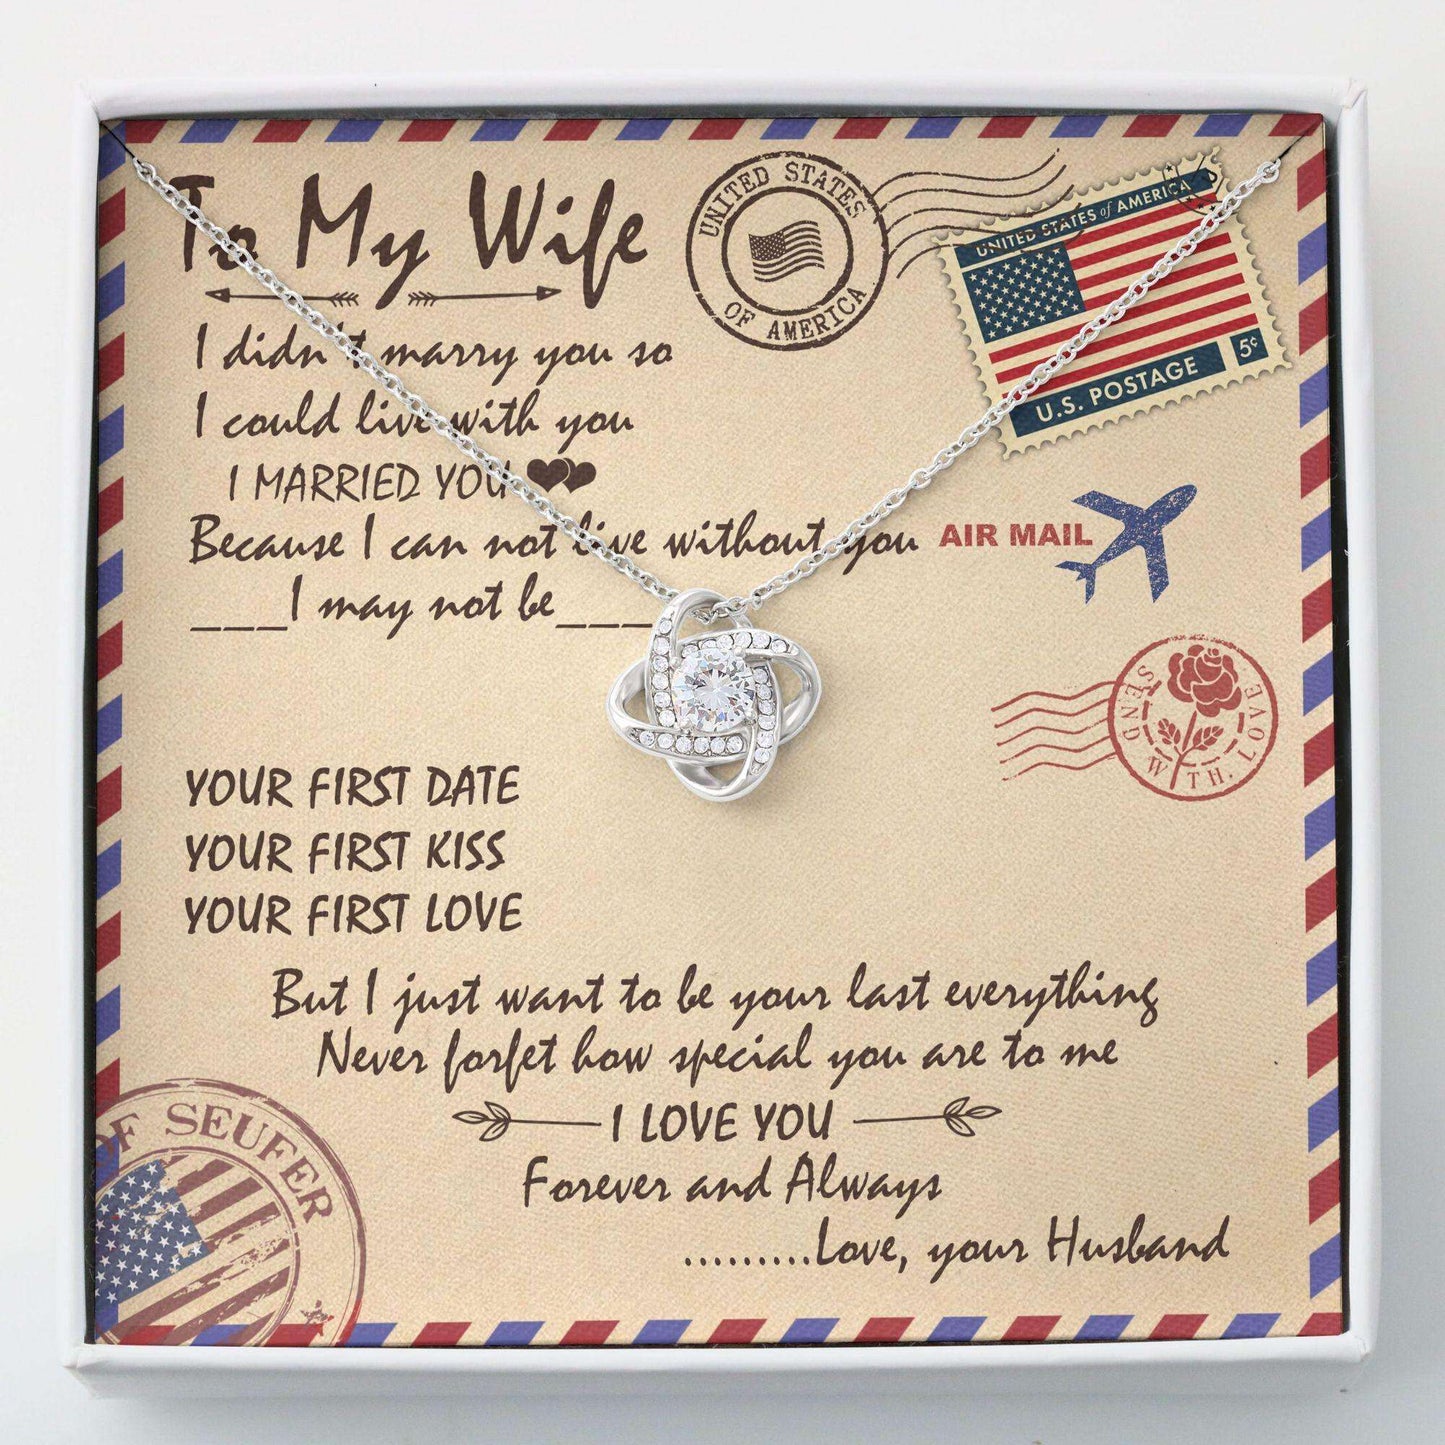 To My Wife
UNITED STATES
OF AMERICA
UNITED STATES of AMERICA
5¢
U.S. POSTAGE
I didn't marry you so
I could live with you
I MARRIED YOU
Because I can not live without you
AIR MAIL
___I may not be___
SEND WITH. LOVE
YOUR FIRST DATE
YOUR FIRST KISS
YOUR FIRST LOVE
But I just want to be your last everything
Never forfet how special you are to me
I LOVE YOU
Forever and Always
.........Love, your Husband
OF SEUFER